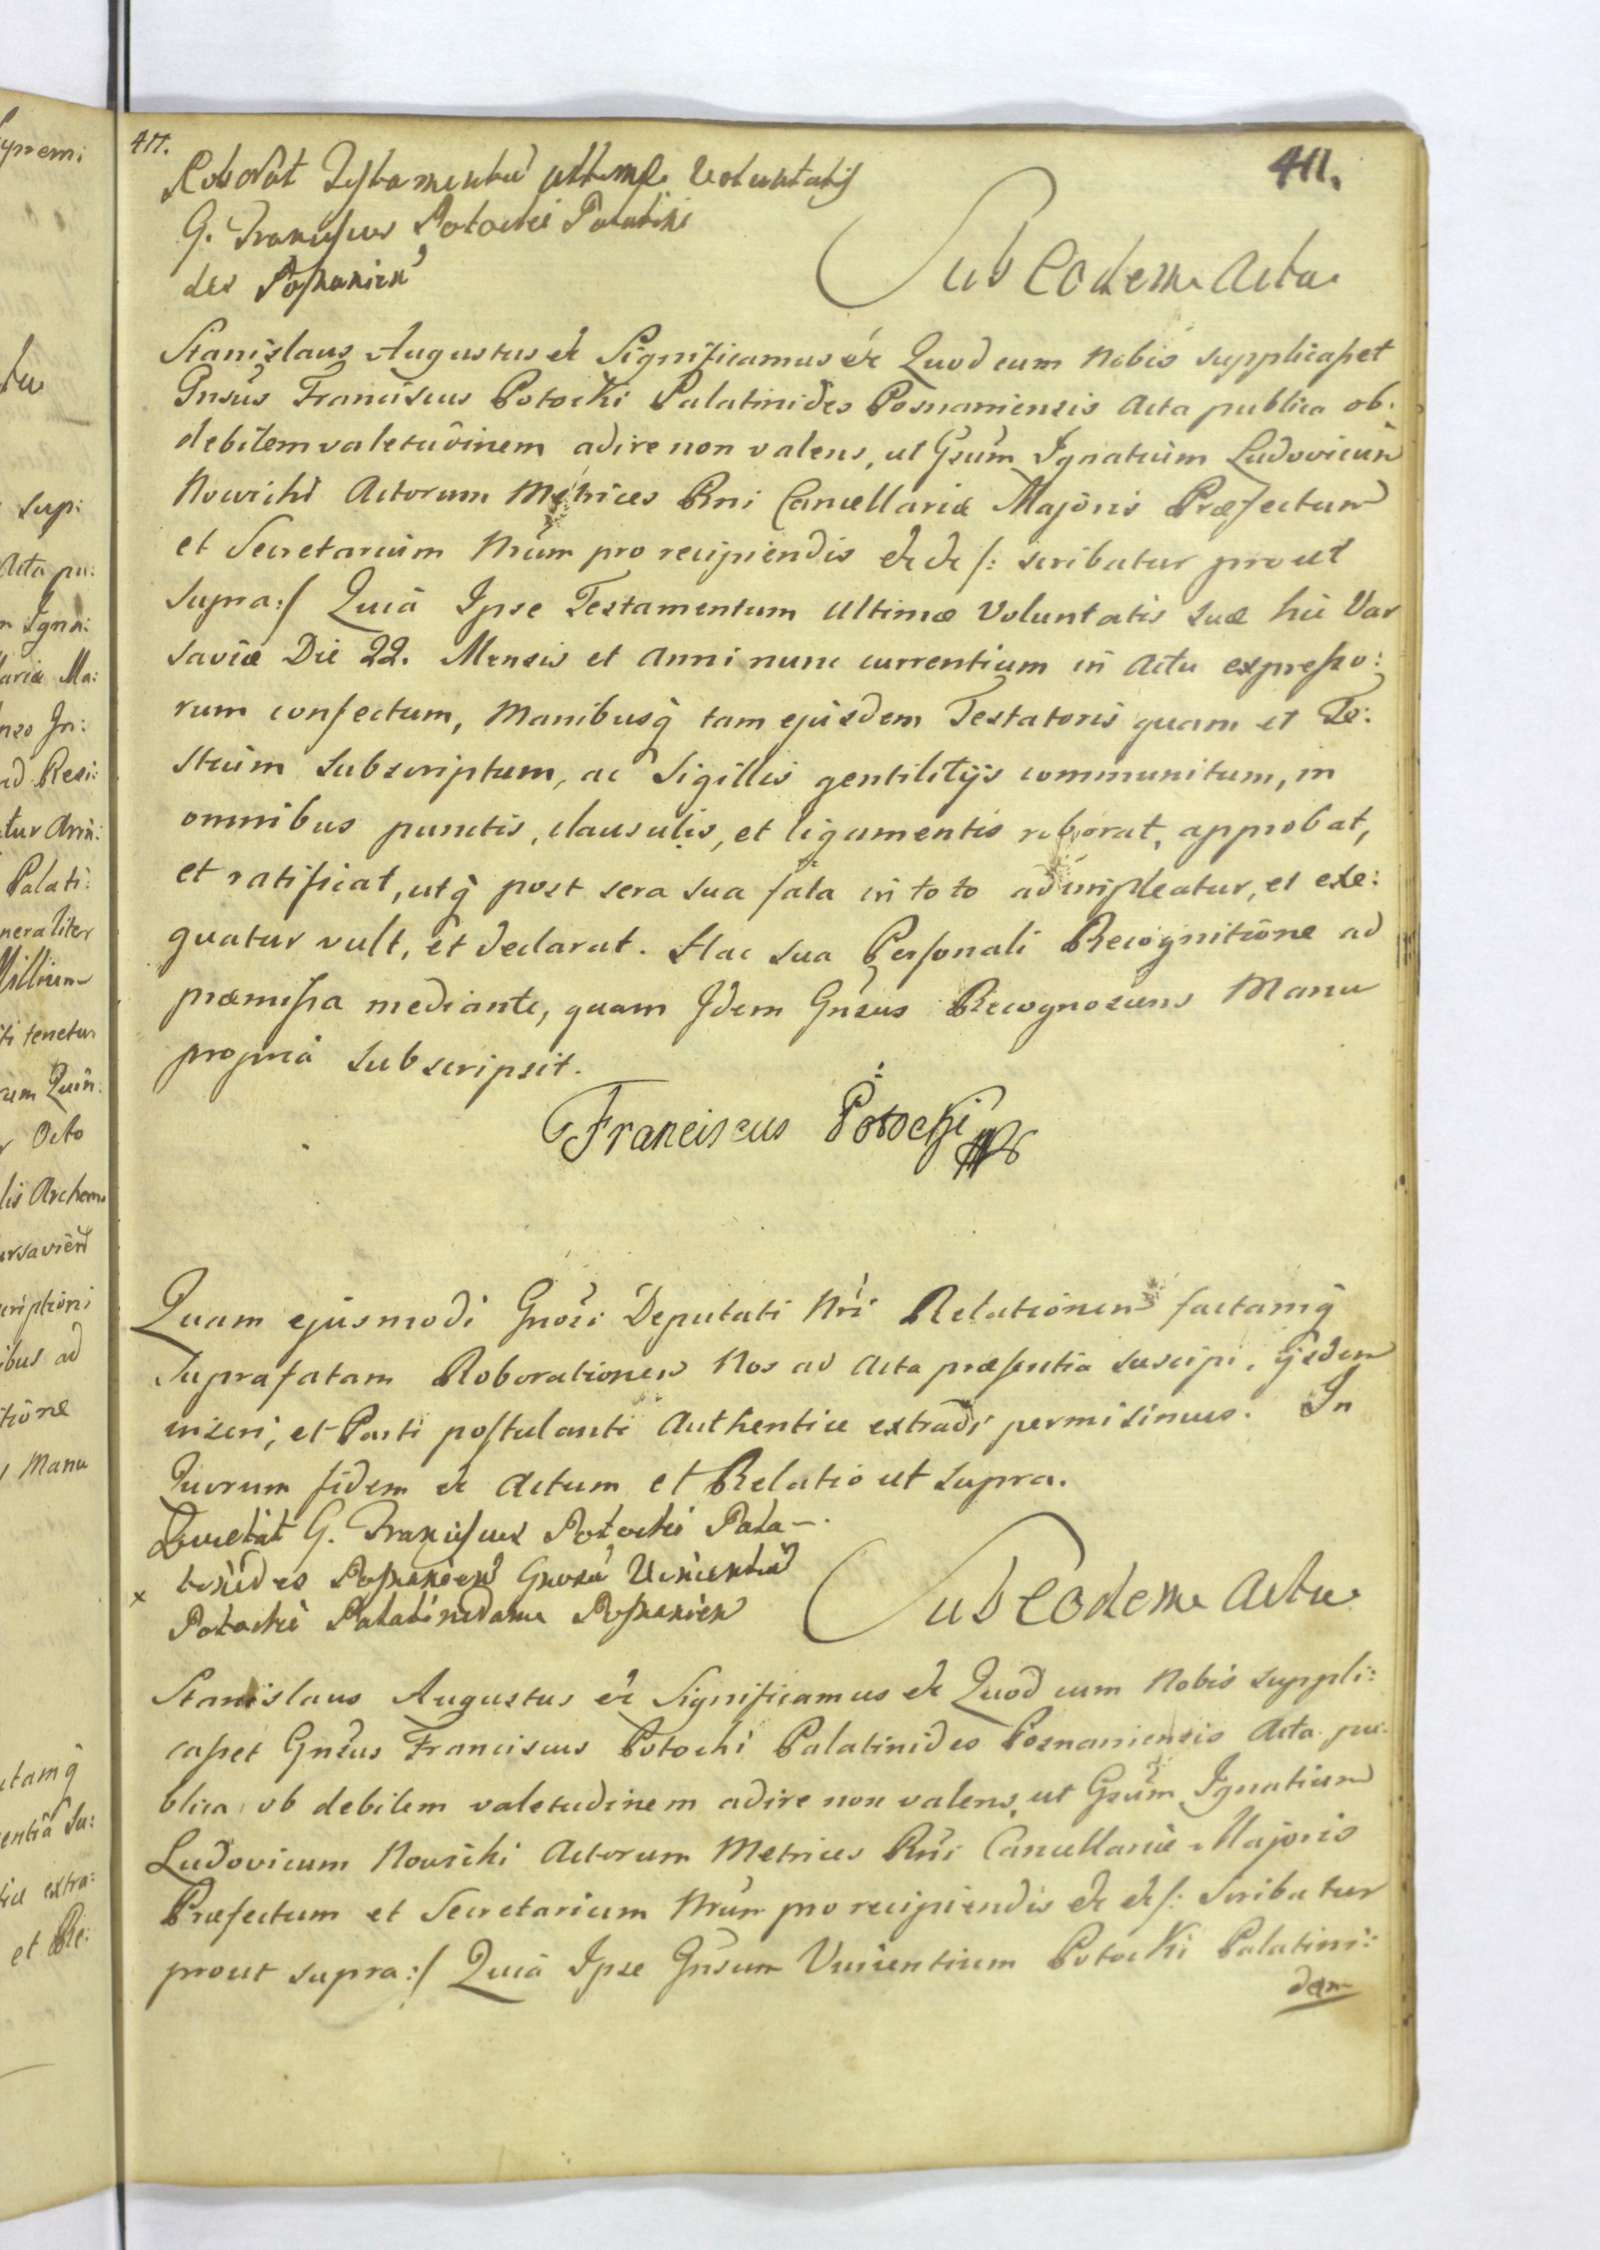 411.
411.
Roborat Testamentu ultimæ Voluntatis
G. Franciscus Potocki Palatini
des Posnanien
Sub Eodem Actu
Stanislaus Augustus &c Significamus &c Quod cum Nobis supplicasset
Gnsus Franciscus Potocki Palatinides Posnaniensis Acta publica ob.
debilem valetudinem adire non valens, ut Gsum Ignatium Ludovicum
Nowicki Actorum Metrices Rni Cancellariæ Majoris Præfectum
et Secretarium Nrum pro recipiendis &c &c /: scribatur prout
supra :/ Quia Ipse Testamentum Ultimæ Voluntatis suæ hic Var
saviæ Die 22. Mensis et Anni nunc currentium in Actu expresso:
rum confectum, Manibusq tam ejusdem Testatoris quam et Te:
stium subscriptum, ac Sigillis gentilitijs communitum, in
omnibus punctis, clausulis, et ligamentis roborat, approbat,
et ratificat, utq post sera sua fata in toto adimpleatur, et exe:
quatur vult, et declarat. Hac sua Personali Recognitione ad
præmissa mediante, quam Idem Gnsus Recognoscens Manu
propria subscripsit.
Franciscus Potocki
Quam ejusmodi Gnosi Deputati Nri Relationem factamq
suprafatam Roborationem Nos ad Acta præsentia suscipi, ijsdem
inseri, et Parti postulanti Authentice extradi permisimus. In
Quorum fidem &c Actum et Relatio ut supra.
Quietat G. Franciscus Potocki Pala-
x tinides Posnanien Gnosu Vincentiu
Potocki Palatinidam Posnanien
Sub Eodem Actu
Stanislaus Augustus &c Significamus &c Quod cum Nobis suppli:
casset Gnsus Franciscus Potocki Palatinides Posnaniensis Acta pu:
blica ob debilem valetudinem adire non valens, ut Gsum Ignatium
Ludovicum Nowicki Actorum Metrices Rni Cancellariæ Majoris
Præfectum et Secretarium Nrum pro recipiendis &c &c /: Scribatur
prout supra :/ Quia Ipse Gnsum Vincentium Potocki Palatini:
dam